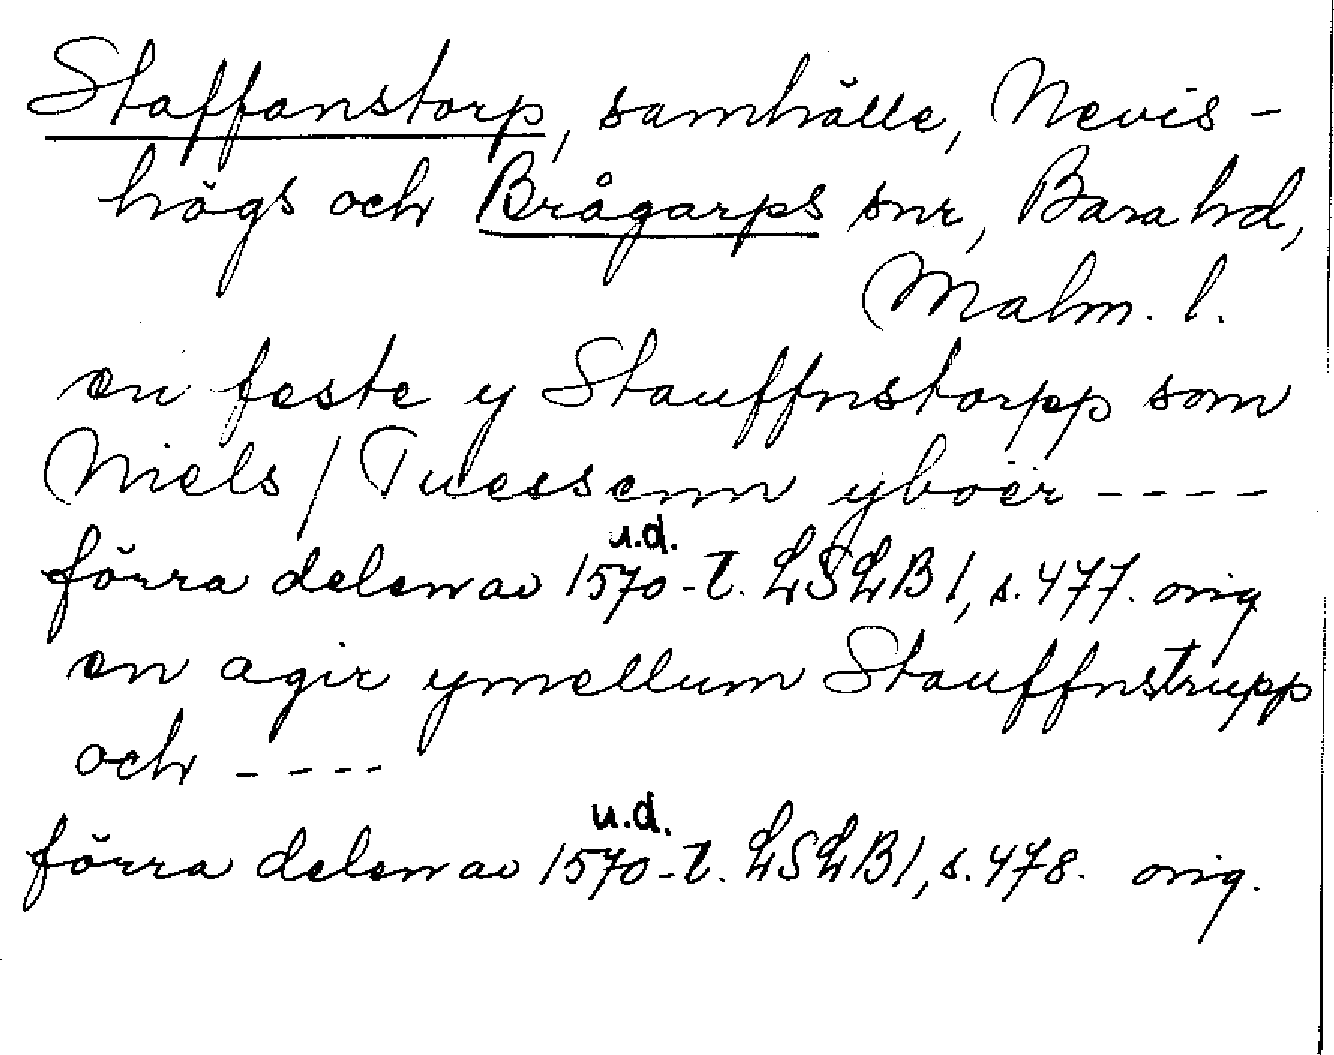 Staffanstorp, samhälle, Nevis-
högs och Brågarps snr, Bara hd,
Malm. l.
en feste y Stauffnstorpp som
Niels / Tuessenn yboer ----
u.d.
förra delen av 1570-t. LSLB 1, s. 477. orig
en agir ymellum Stauffnstrupp
och ----
u.d.
förra delen av 1570-t. LSLB 1, s. 478. orig.